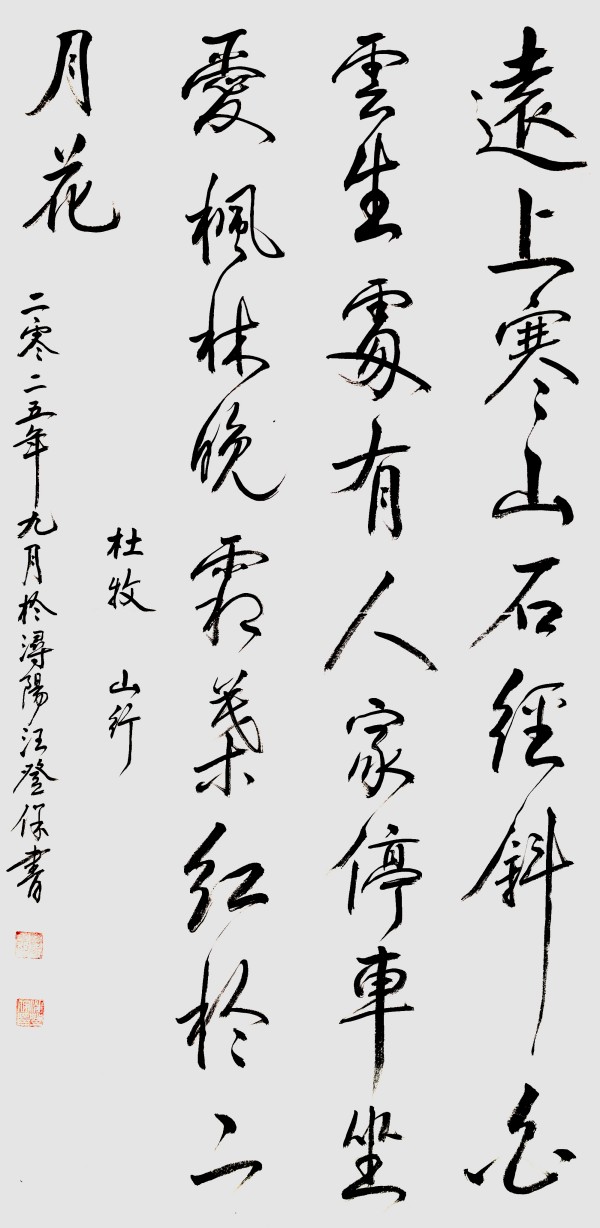 遠上寒山石徑斜白
雲生處有人家停車坐
愛楓林晚霜葉紅於二
月花
杜牧 山行
二零二五年九月於潯陽汪登保書